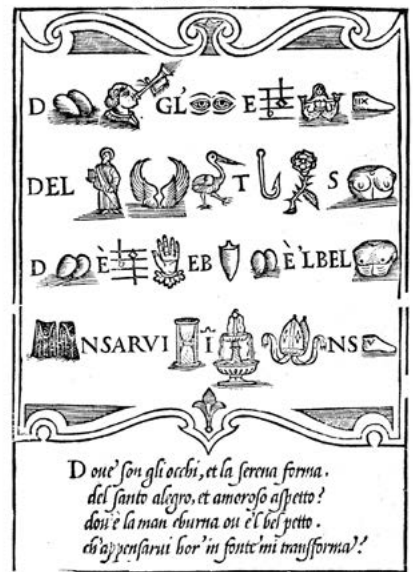 D GL' E
DEL T S
D È EB È 'L BEL
NSARVI Ĩ NS
Doue' son gli occhi, et la serena forma.
del santo alegro, et amoroso aspetto?
dou'è la man eburna ou'e'l bel petto.
ch'appensarui hor' in fonte' mi transforma?